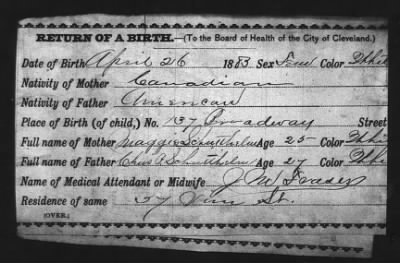 RETURN OF A BIRTH.—(To the Board of Health of the City of Cleveland.)
Date of Birth April 26 1883 Sex Fem Color White
Nativity of Mother Canadian
Nativity of Father American
Place of Birth (of child,) No. 137 Broadway Street
Full name of Mother Maggie Age 25 Color White
Full name of Father Chas Age 27 Color White
Name of Medical Attendant or Midwife J M Fraser
Residence of same 37 St.
(OVER.)